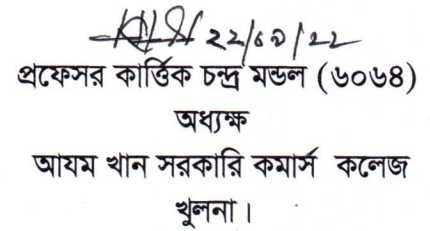 ২২/০৯/২২
প্রফেসর কার্ত্তিক চন্দ্র মন্ডল (৬০৬৪)
অধ্যক্ষ
আযম খান সরকারি কমার্স কলেজ
খুলনা।